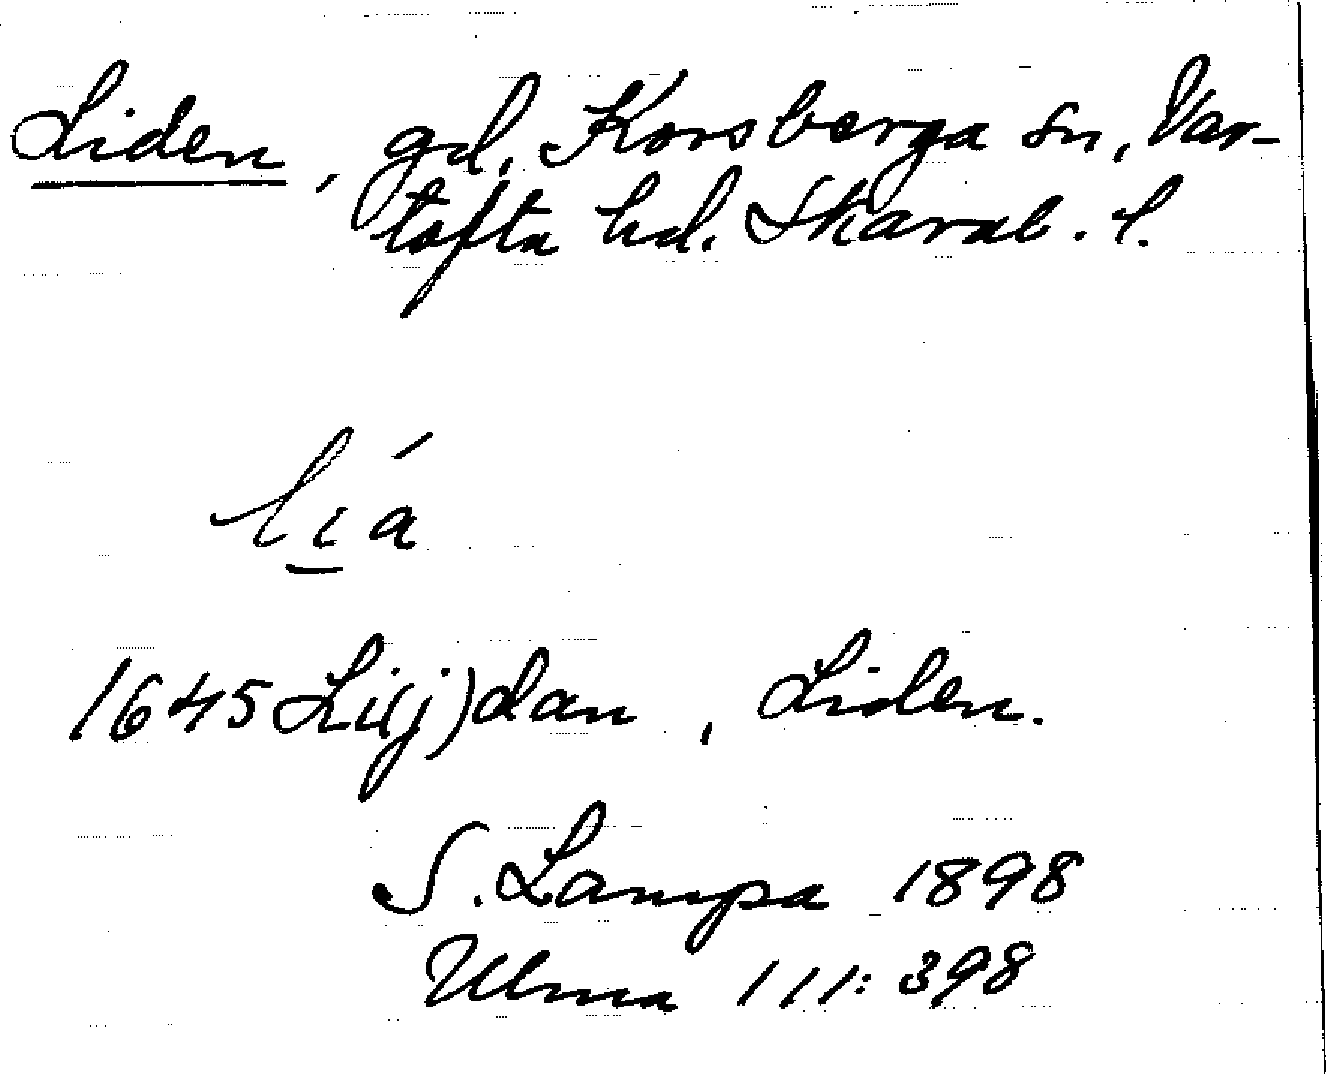 Liden, gd. Korsberga sn, Var-
tofta hd. Skarab. l.
li̲á
1645 Li(j)dan, Liden.
S. Lampa 1898
Ulma 111:398